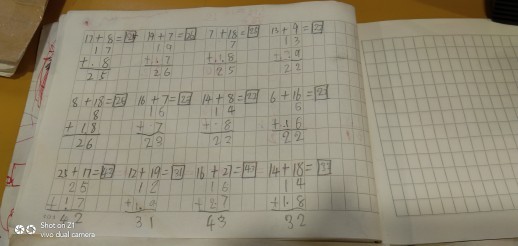 17+8=25 19+7=26 7+18=25 13+9=22
17 19 7 13
+.8 +.7 +1.8 +.9
25 26 25 22
8+18=26 16+7=23 14+8=22 6+16=22
8 16 14 6
+1.8 +.7 +.8 +.16
26 23 22 22
25+17=42 12+19=31 16+27=43 14+18=32
25 12 16 14
+1.7 +1.9 +2.7 +1.8
42 31 43 32
Shot on Z1
vivo dual camera